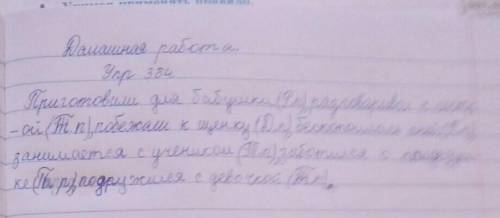 Домашная работа.
Упр 384
Приготовили для бабушки (Рп) разговаривал с
-ой (Тп), побежали к щенку (Дп)
занимается с учеником (Тп) заботился о подруж-
ке (Пр), подружился с девочкой (Тп).